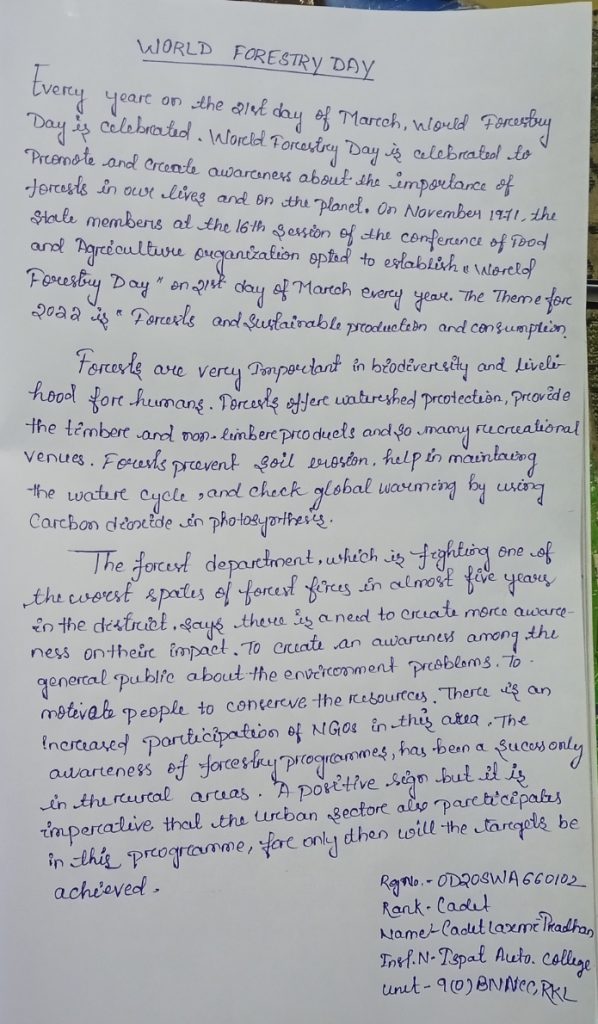 WORLD FORESTRY DAY
Every year on the 21st day of March, World Forestry
Day is celebrated. World Forestry Day is celebrated to
Promote and create awareness about the importance of
forests in our lives and on the planet. On November 1971, the
state members at the 16th session of the conference of Food
and Agriculture organization opted to establish "World
Forestry Day" on 21st day of March every year. The Theme for
2022 is "Forests and Sustainable production and consumption.
Forests are very Important in biodiversity and Liveli-
hood for humans. Forests offer watershed protection, provide
the timber and non-timber products and so many recreational
venues. Forests prevent soil erosion, help in maintaing
the water cycle, and check global warming by using
Carbon dioxide in photosynthesis.
The forest department, which is fighting one of
the worst spates of forest fires in almost five years
in the district, says there is a need to create more aware-
ness on their impact. To create an awareness among the
general public about the environment problems. To
motivate people to conserve the resources. There is an
increased participation of NGOs in this area. The
awareness of forestry programmes, has been a sucess only
in the rural areas. A positive sign but it is
imperative that the urban sector also participates
in this programme, for only then will the targets be
achieved.
Rg No. - OD20SWA660102
Rank - Cadet
Name - Cadet Laxmi Pradhan
Inst. N - Ispat Auto. College
unit - 9(O) BN NCC, RKL